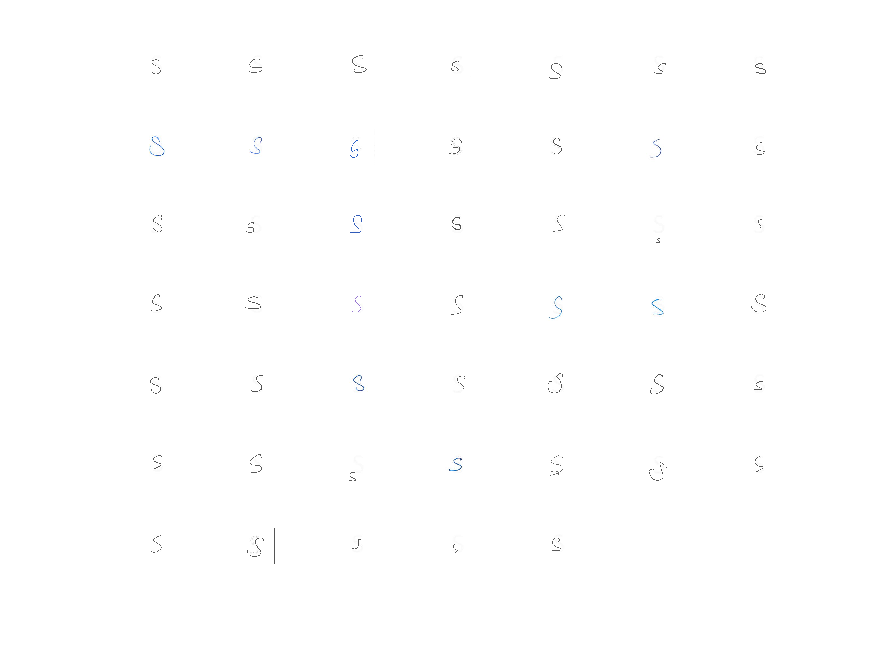 S S S s S s s
S S S S S S s
S s S s S S s
S S S S S S S
S S S S S S s
s S s s S S s
S S s s s